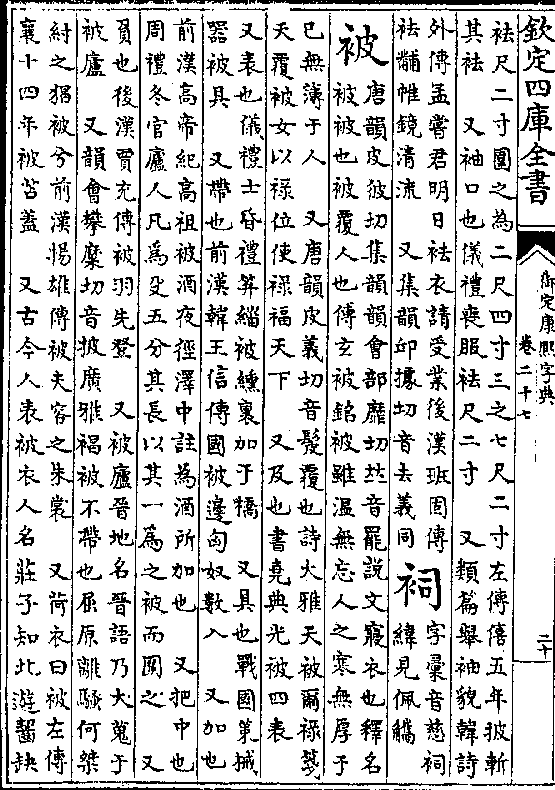 欽定四庫全書
御定康熙字典
卷二十七
二十
袪尺二寸圍之為二尺四寸三之七尺二寸左傳僖五年披斬
其袪　又袖口也儀禮喪服袪尺二寸　又類篇舉袖貌韓詩
外傳孟嘗君明日袪衣請受業後漢班固傳
袪黼帷鏡清流　又集韻卭據切音去義同
祠
字彙音慈祠
緯見佩觿
被
唐韻皮彼切集韻韻會部靡切𠀤音罷說文寢衣也釋名
被被也被覆人也傳玄被銘被雖温無忘人之寒無厚于
已無薄于人　又唐韻皮義切音髲覆也詩大雅天被爾祿箋
天覆被女以祿位使祿福天下　又及也書堯典光被四表
又表也儀禮士昏禮笲緇被纁裏加于橋　又具也戰國策械
器被具　又帶也前漢韓王信傳國被邊匈奴數入　又加也
前漢高帝紀高祖被酒夜徑澤中註為酒所加也　又把中也
周禮冬官廬人凡為殳五分其長以其一為之被而圍之　又
貟也後漢賈充傳被羽先登　又被廬晉地名晉語乃大蒐于
被廬　又韻會攀糜切音披廣雅褐被不帶也屈原離騷何桀
紂之猖被兮前漢揚雄傳被夫容之朱裳　又荷衣曰被左傳
襄十四年被苫蓋　又古今人表被衣人名莊子知北遊齧缺